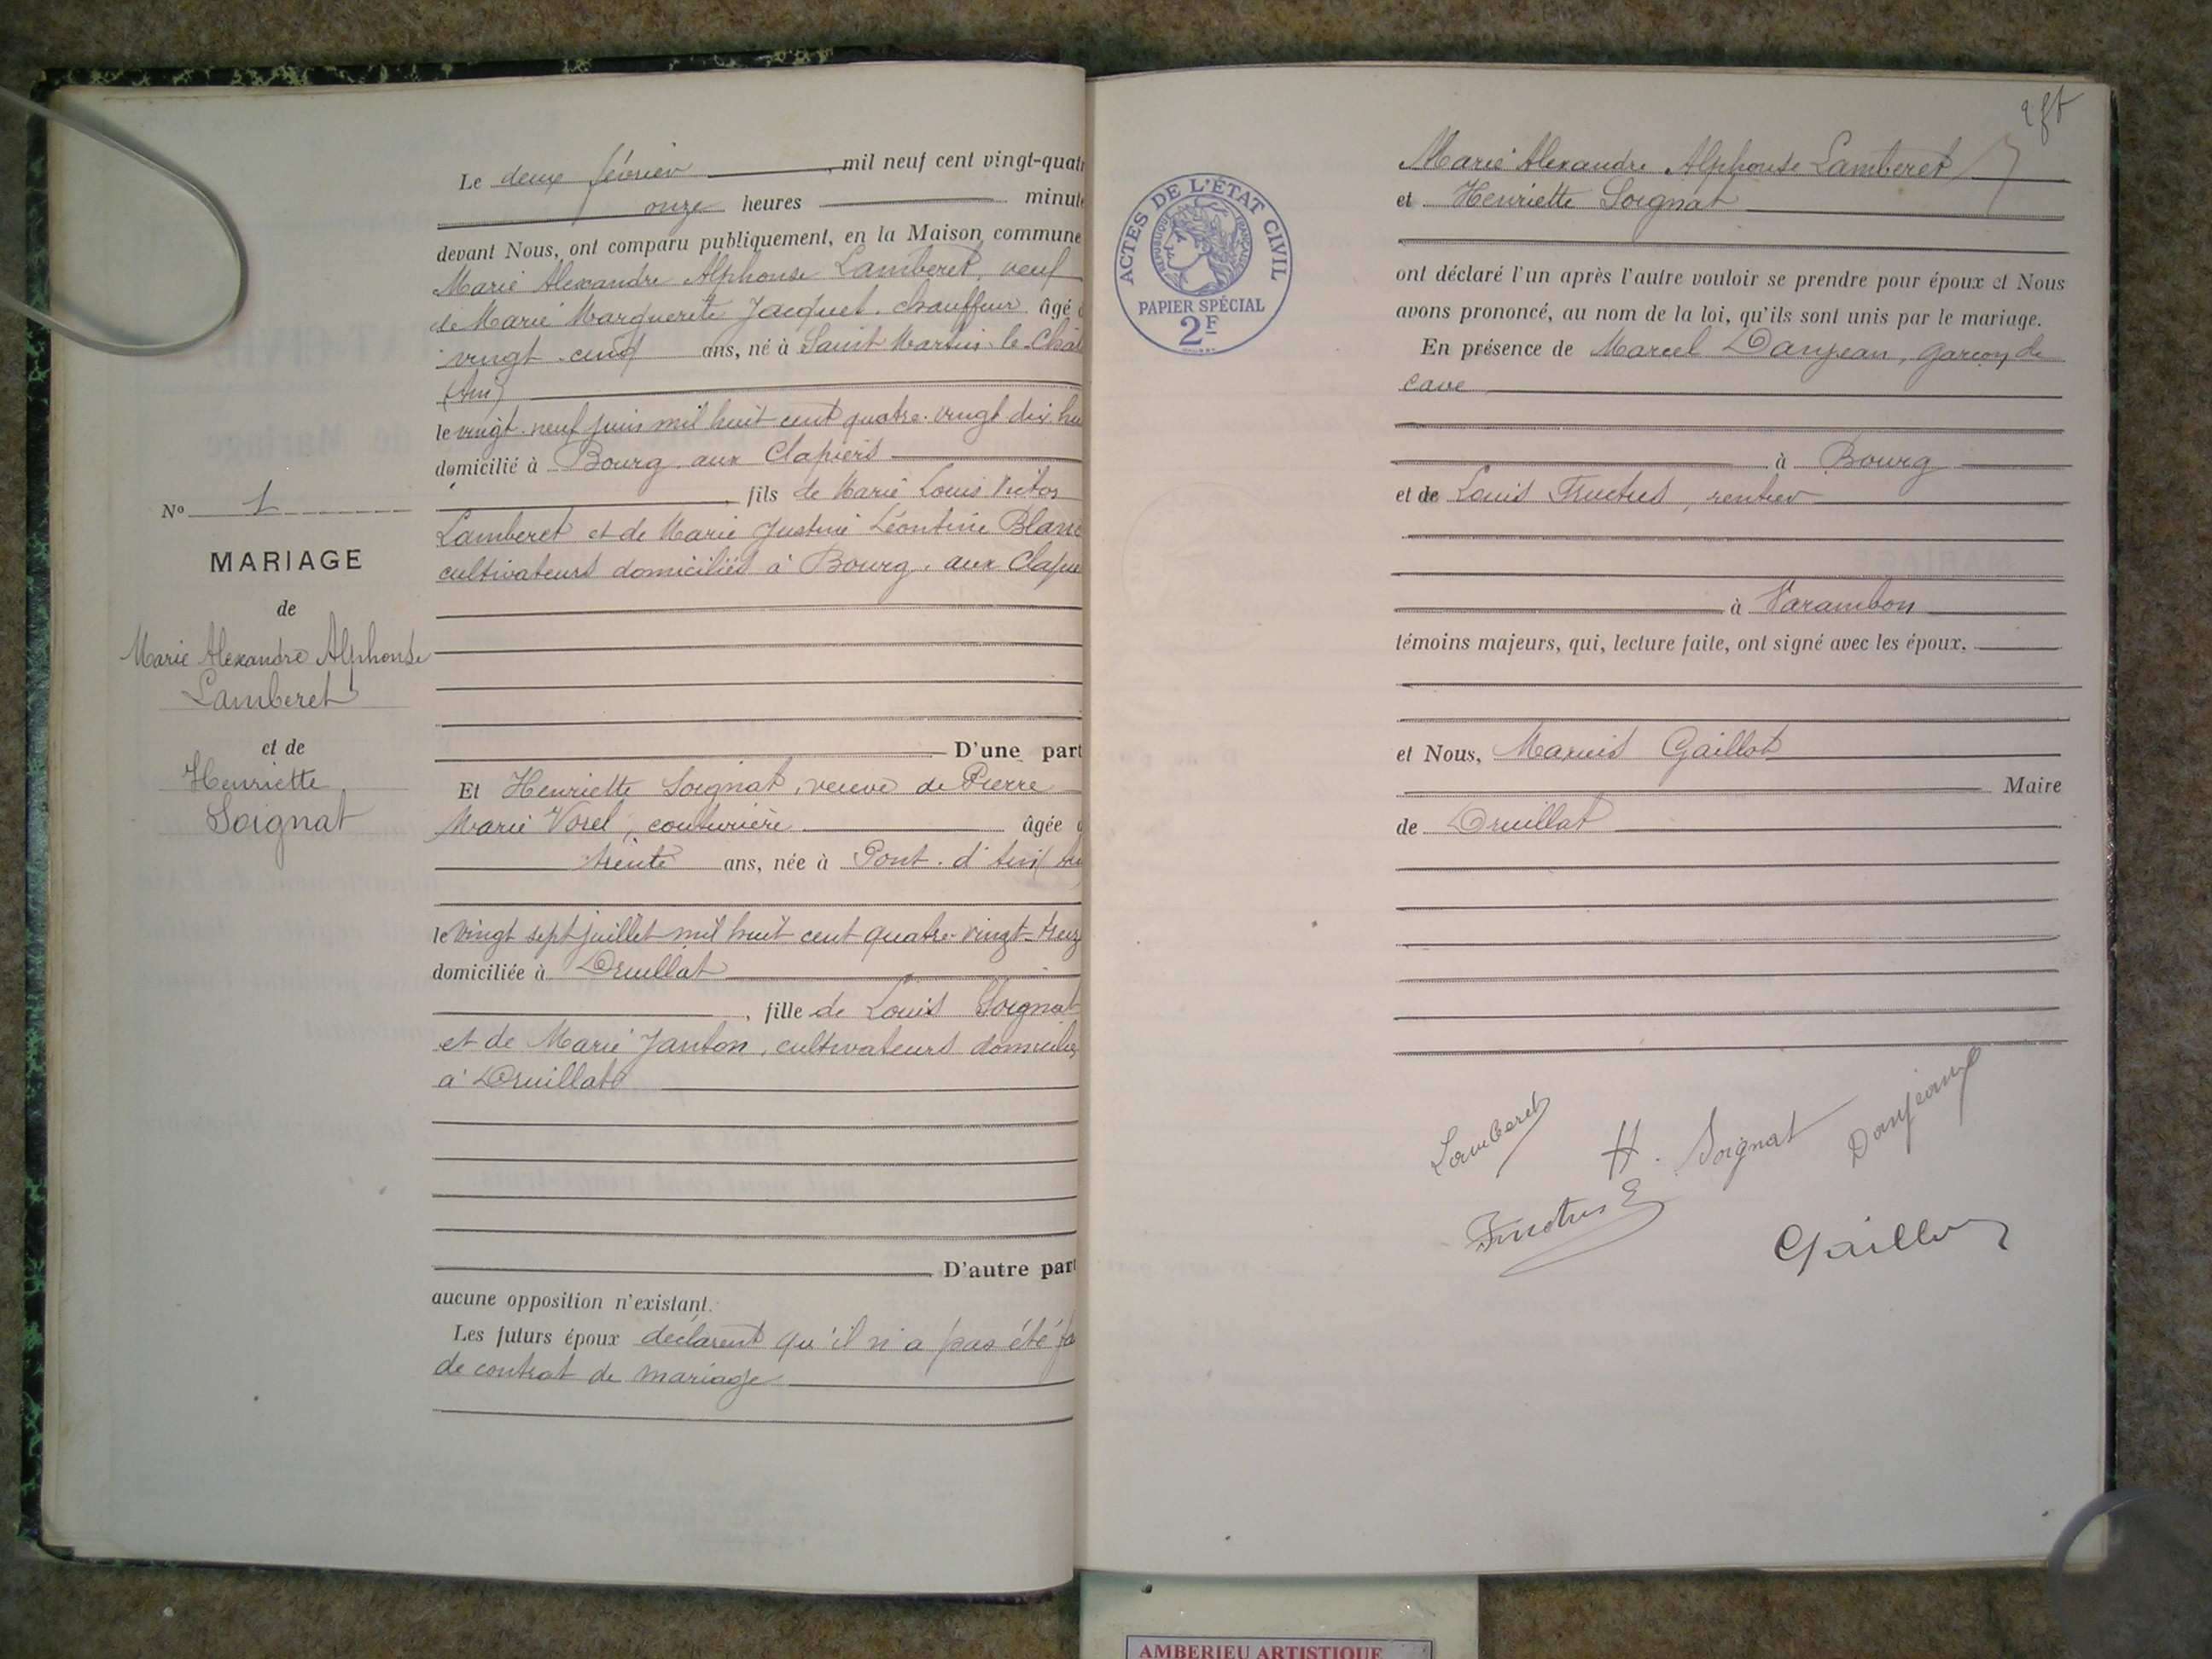 Le deux février mil neuf cent vingt-quatr
onze heures minute
devant Nous, ont comparu publiquement, en la Maison commune
Marie Alexandre Alphonse Lamberet, veuf
de Marie Marguerite Jacquet, chauffeur âgé d
vingt-cinq ans, né à Saint Martin-le-Chât
(Ain)
le vingt-neuf juin mil huit cent quatre-vingt dix hu
domicilié à Bourg aux Clapiers
fils de Marie Louis Victor
Lamberet et de Marie Justine Léontine Blanc
cultivateurs domiciliés à Bourg, aux Clapie
D'une part
Et Henriette Soignat, veuve de Pierre
Marie Vorel, couturière âgée d
trente ans, née à Pont-d'Ain (Ain)
le vingt sept juillet mil huit cent quatre-vingt-treiz
domiciliée à Druillat
, fille de Louis Soignat
et de Marie Janton, cultivateurs domiciliés
à Druillat
D'autre part
aucune opposition n'existant.
Les futurs époux déclarent qu'il n'a pas été fa
de contrat de mariage
No 1
MARIAGE
de
Marie Alexandre Alphonse
Lamberet
et de
Henriette
Soignat
ACTES DE L'ÉTAT CIVIL
RÉPUBLIQUE FRANÇAISE
PAPIER SPÉCIAL
2F
Marie Alexandre Alphonse Lamberet
et Henriette Soignat
ont déclaré l'un après l'autre vouloir se prendre pour époux et Nous
avons prononcé, au nom de la loi, qu'ils sont unis par le mariage.
En présence de Marcel Danjean, garçon de
cave
à Bourg
et de Louis Fructus, rentier
à Varambon
témoins majeurs, qui, lecture faite, ont signé avec les époux,
et Nous, Marius Gaillot
Maire
de Druillat
Lamberet
H. Soignat
Danjean
Fructus
Gaillot
AMBERIEU ARTISTIQUE